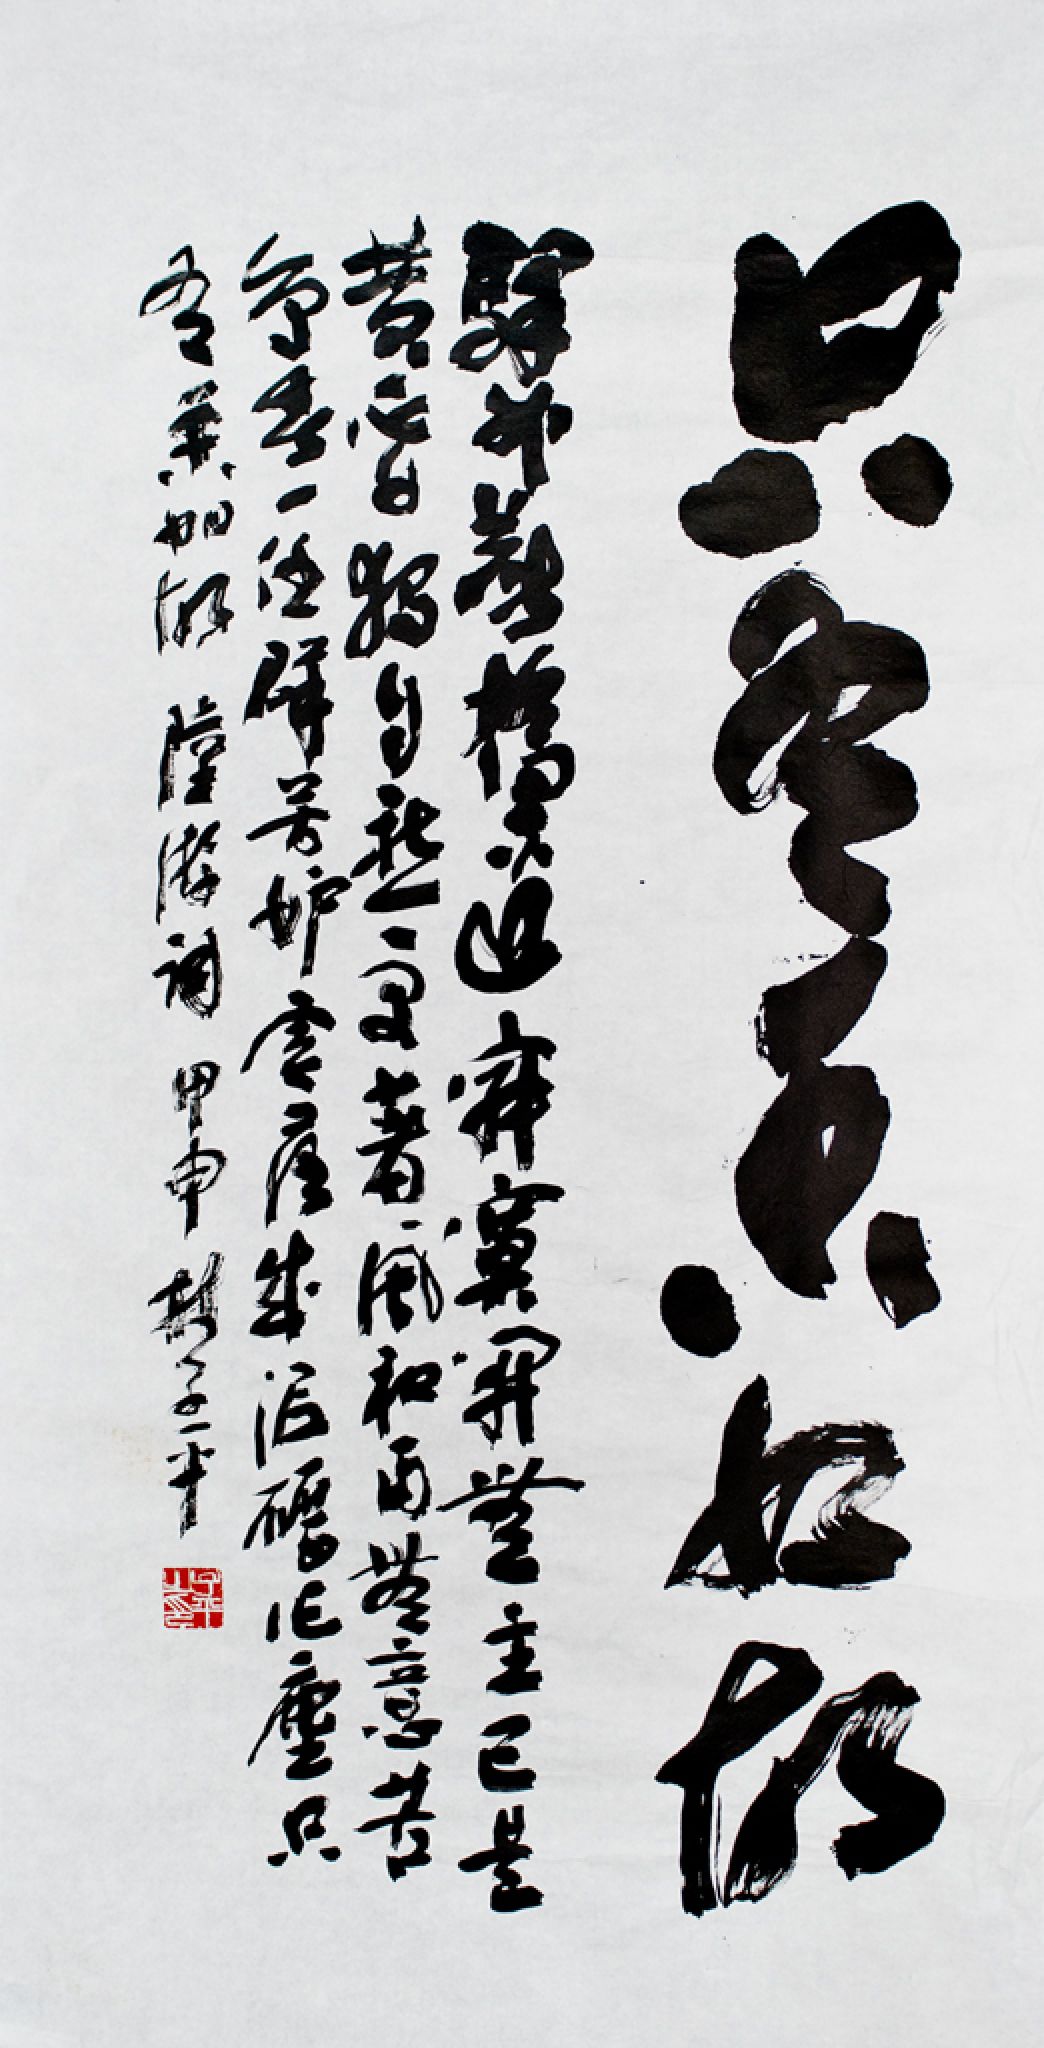 只有香如故
驛外斷橋邊寂寞開無主已是
黃昏獨自愁更著風和雨無意苦
爭春一任群芳妒零落成泥碾作塵只
有香如故 陸游詞 甲申 子平